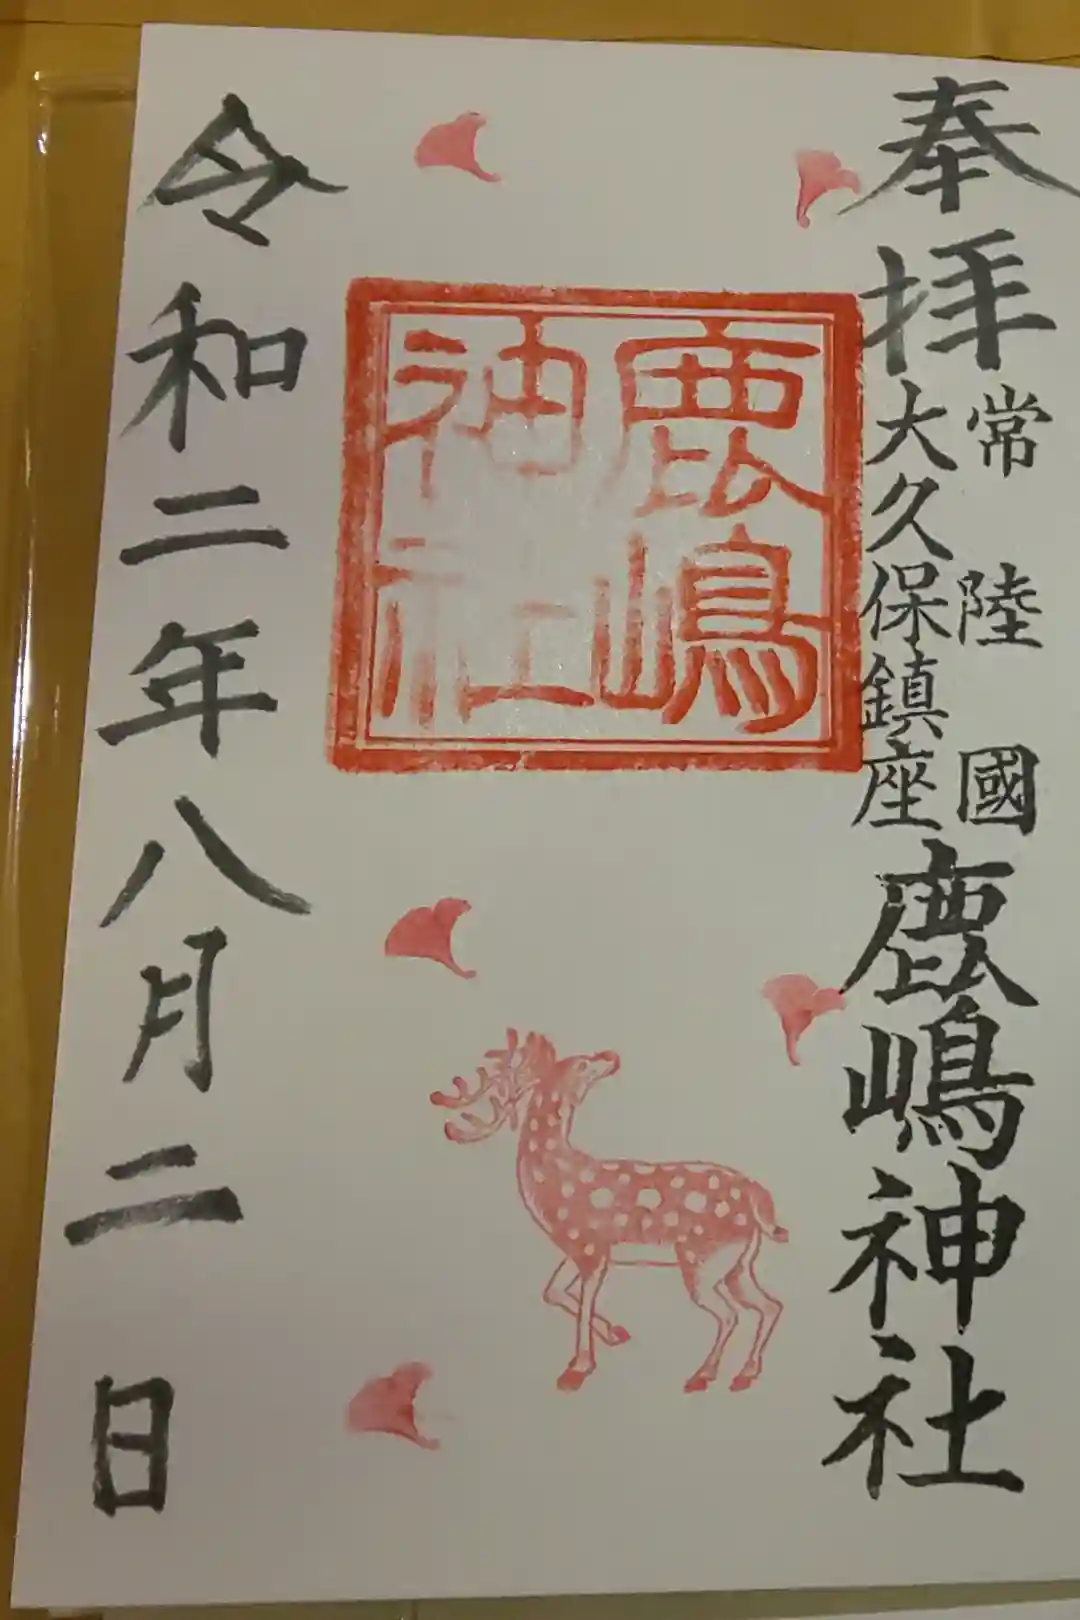 奉拝
常陸國
大久保鎮座
鹿嶋神社
鹿嶋
神社
令和二年八月二日